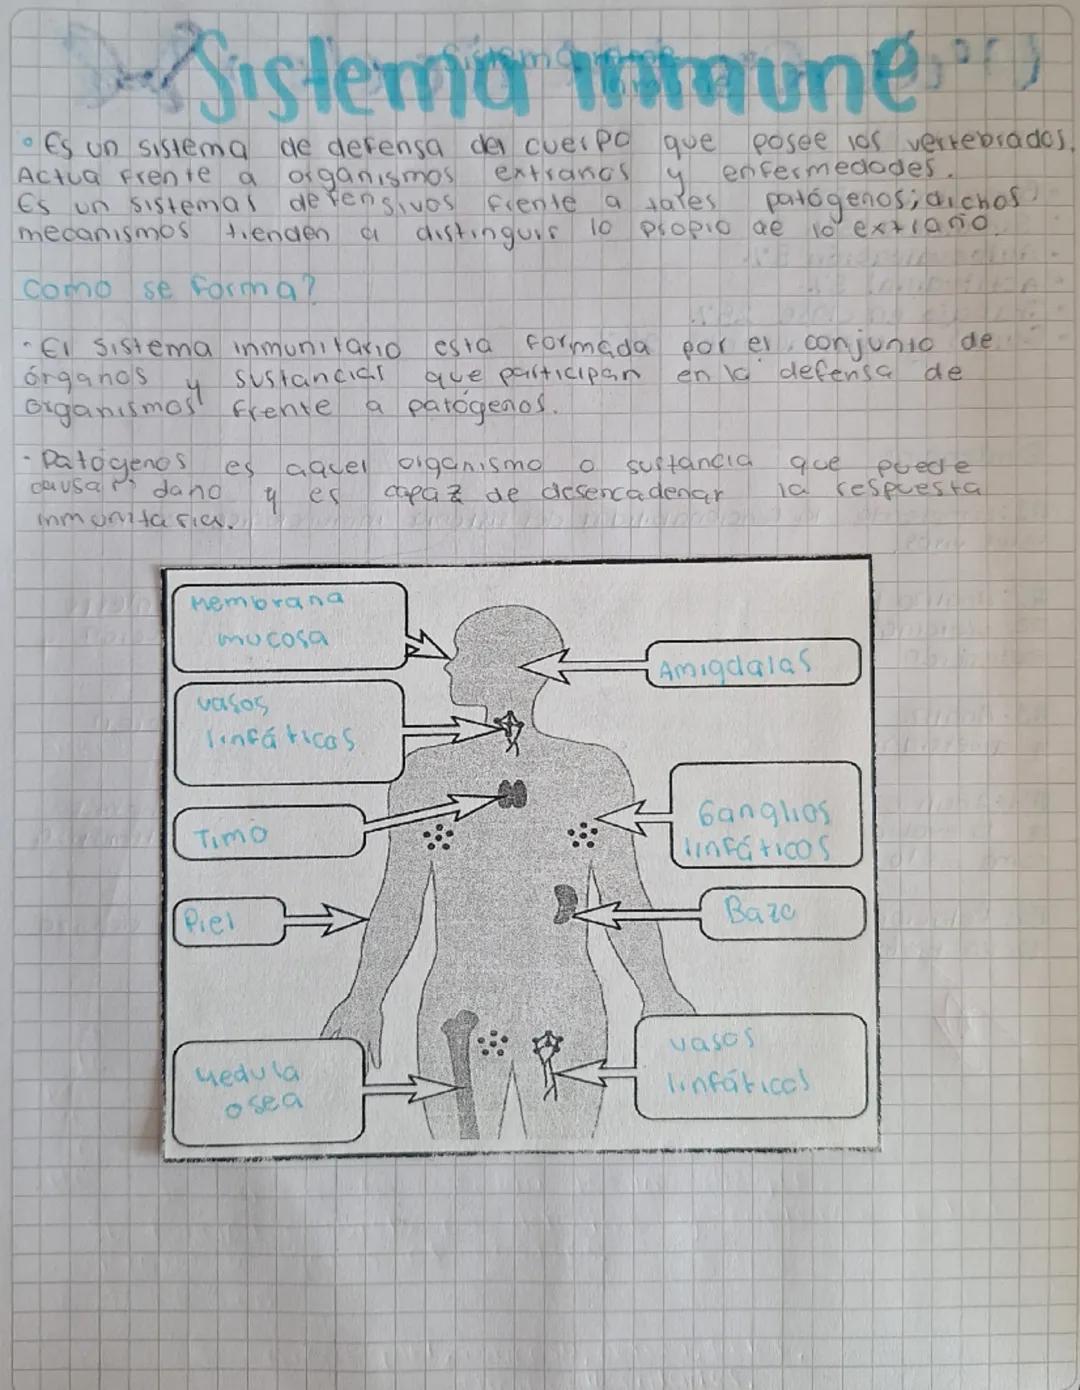 Sistema inmune
Es un sistema de defensa del cuerpo que posee los vertebrados.
Actua frente a organismos extraños y enfermedades.
Es un sistemas defensivos frente a tales patógenos; dichos
mecanismos tienden a distinguir lo propio de lo extraño.
Como se forma?
- El sistema inmunitario esta formada por el conjunto de
órganos y sustancias que participan en la defensa de
organismos frente a patógenos.
- Patógenos es aquel organismo o sustancia que puede
causar daño y es capaz de desencadenar la respuesta
inmunitaria.
Membrana
mucosa
Amigdalas
vasos
linfáticos
Timo
Ganglios
linfáticos
Piel
Bazo
Medula
osea
vasos
linfáticos